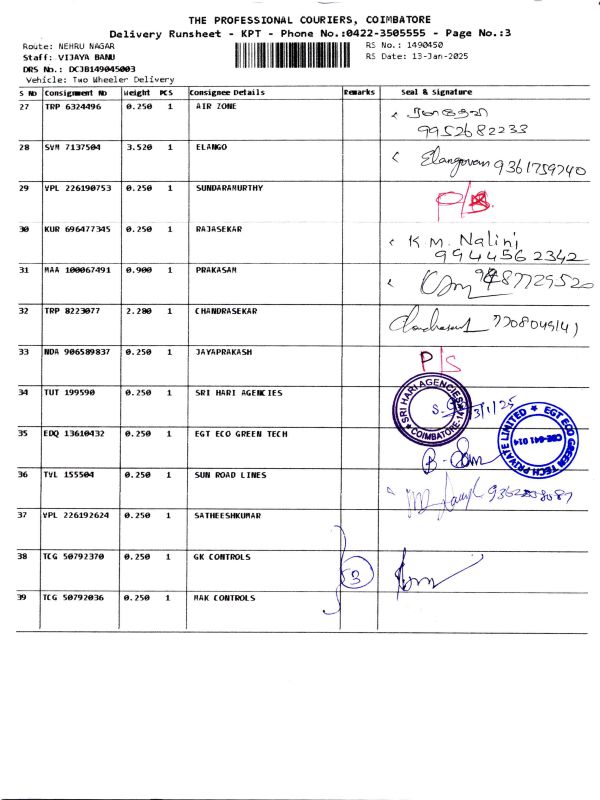 THE PROFESSIONAL COURIERS, COIMBATORE
Delivery Runsheet - KPT - Phone No.:0422-3505555 - Page No.:3
Route: NEHRU NAGAR RS No.: 1490450
Staff: VIJAYA BANU RS Date: 13-Jan-2025
DRS No.: DCJB149045003
Vehicle: Two Wheeler Delivery
S No Consignment No Weight PCS Consignee Details Remarks Seal & Signature
27 TRP 6324496 0.250 1 AIR ZONE
9952682233
28 SVM 7137504 3.520 1 ELANGO Elangovan 9361759740
29 VPL 226190753 0.250 1 SUNDARAMURTHY P/S
30 KUR 696477345 0.250 1 RAJASEKAR K M. Nalini
9944562342
31 MAA 100067491 0.900 1 PRAKASAM 9487729520
32 TRP 8223077 2.280 1 CHANDRASEKAR Chandrasekar 7708049141
33 NDA 906589837 0.250 1 JAYAPRAKASH P/S
34 TUT 199590 0.250 1 SRI HARI AGENCIES SRI HARI AGENCIES COIMBATORE 13/1/25
35 EDQ 13610432 0.250 1 EGT ECO GREEN TECH EGT ECO GREEN TECH PRIVATE LIMITED CBE-641 014
36 TVL 155504 0.250 1 SUN ROAD LINES
37 VPL 226192624 0.250 1 SATHEESHKUMAR
38 TCG 50792370 0.250 1 GK CONTROLS 3
39 TCG 50792036 0.250 1 MAK CONTROLS